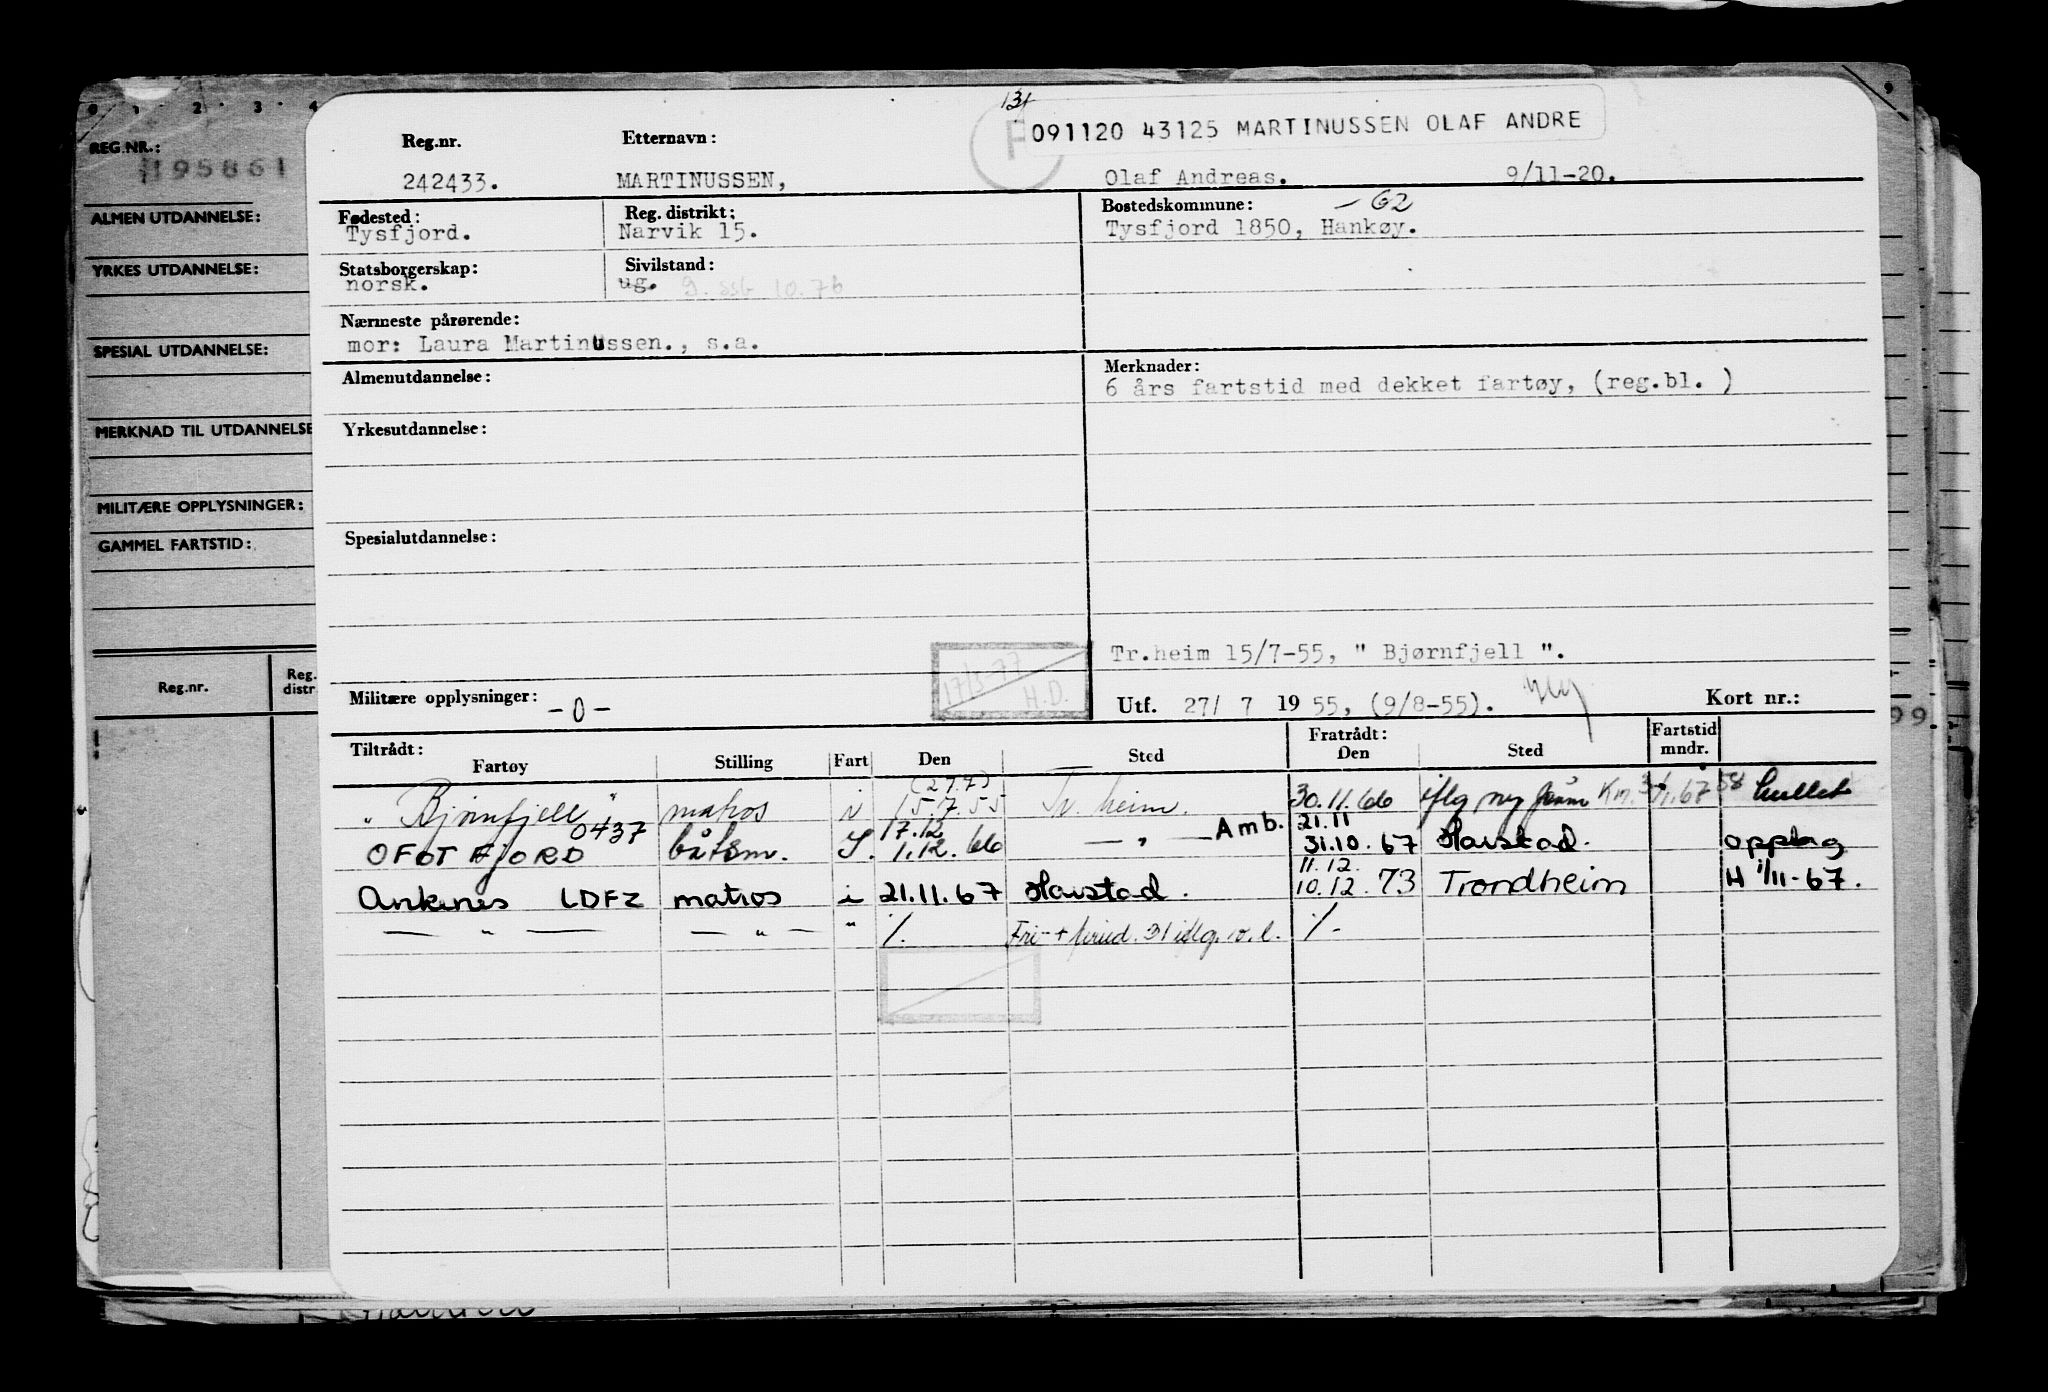 131
091120 43125 MARTINUSSEN OLAF ANDRE
Reg.nr. Etternavn:
242433. MARTINUSSEN, Olaf Andreas. 9/11-20.
Fødested: Reg. distrikt: Bostedskommune: -62
Tysfjord. Narvik 15. Tysfjord 1850, Hankøy.
Statsborgerskap: Sivilstand:
norsk. ug. g. ssb 10.76
Nærmeste pårørende:
mor: Laura Martinussen., s.a.
Almenutdannelse: Merknader:
6 års fartstid med dekket fartøy, (reg.bl. )
Yrkesutdannelse:
Spesialutdannelse:
Tr.heim 15/7-55, " Bjørnfjell ".
17/3-77
H.D.
Militære opplysninger: -0- Utf. 27/ 7 1955, (9/8-55). Kort nr.:
Tiltrådt: Fratrådt: Fartstid
Fartøy Stilling Fart Den Sted Den Sted mndr.
(27.7)
"Bjørnfjell" matros i 15.7.55 Tr.heim. 30.11.66 iflg ny
0437 17.12 Amb. 21.11
OFOTFJORD båtsm. 1.12.66 — " — 31.10.67 Harstad. opplag
11.12.
Ankenes LDFZ matros i 21.11.67 Harstad. 10.12.73 Trondheim H 1/11-67.
— " — — " — " ./. Fri + 31 iflg. ./-
0 1 2 3 4
9
REG.NR.:
195861
ALMEN UTDANNELSE:
YRKES UTDANNELSE:
SPESIAL UTDANNELSE:
MERKNAD TIL UTDANNELSE
MILITÆRE OPPLYSNINGER:
GAMMEL FARTSTID:
Reg.nr. Reg. distr
99